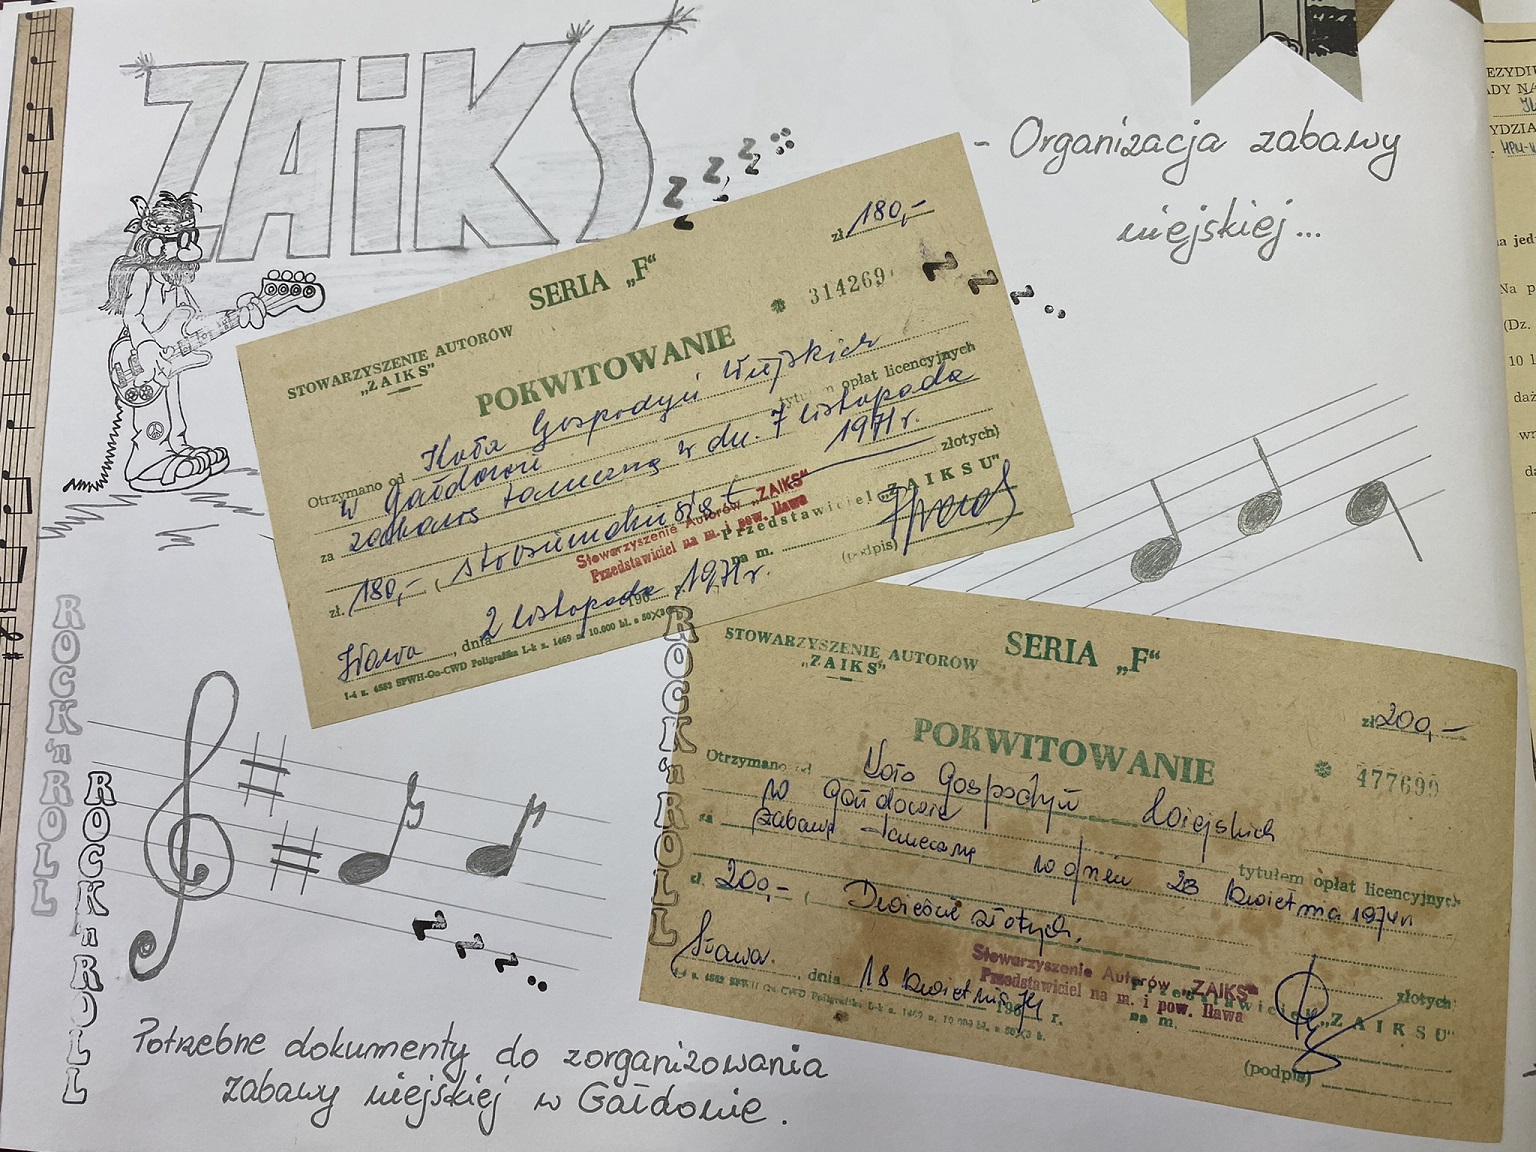 ZAiKS
- Organizacja zabawy
wiejskiej...
SERIA „F"
zł 180,-
STOWARZYSZENIE AUTORÓW
„ZAIKS"
* 314269
POKWITOWANIE
Otrzymano od Koła Gospodyń Wiejskich
w Gałdowie tytułem opłat licencyjnych
za zabawę taneczną w dn. 7 listopada
1971r.
zł. 180,- ( sto osiemdziesiąt złotych)
Stowarzyszenie Autorów „ZAIKS"
Przedstawiciel na m. i pow. Iława
przedstawiciel „ZAIKSU"
na m.
(podpis)
Iława, dnia 2 listopada 196 1971r.
I-4 z. 4552 SPWH-Oo-CWD Poligrafika Ł-k z. 1469 n. 10.000 bl. a 50X3
SERIA „F"
STOWARZYSZENIE AUTORÓW
„ZAIKS"
zł 200,-
POKWITOWANIE
* 477699
Otrzymano od Koło Gospodyń Wiejskich
w Gałdowie tytułem opłat licencyjnych
za zabawę taneczną w dniu 28 kwietnia 1974r
zł. 200,- ( Dwieście złotych. złotych
Stowarzyszenie Autorów „ZAIKS"
Przedstawiciel na m. i pow. Iława
przedstawiciel „ZAIKSU"
na m.
(podpis)
Iława. , dnia 18 kwietnia 196 74 r.
ROCK 'n ROLL
ROCK 'n ROLL
ROCK 'n ROLL
Potrzebne dokumenty do zorganizowania
zabawy wiejskiej w Gałdowie.